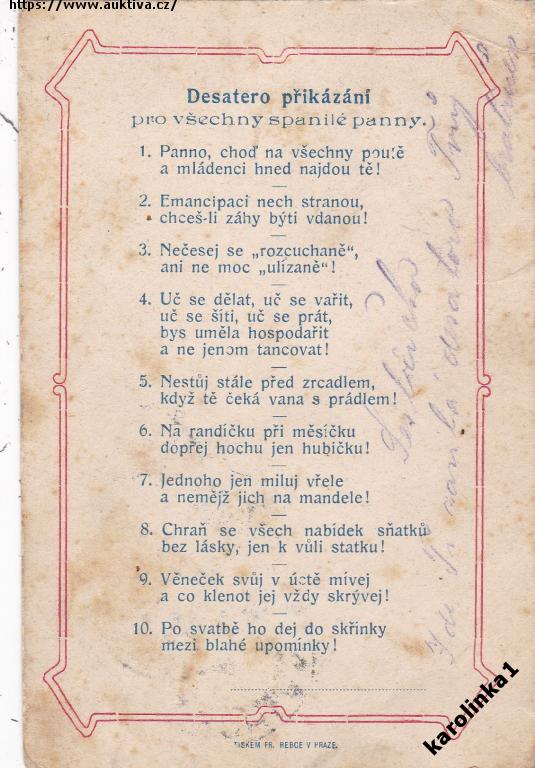 https://www.auktiva.cz/
Desatero přikázání
pro všechny spanilé panny.
1. Panno, choď na všechny poutě
a mládenci hned najdou tě!
2. Emancipaci nech stranou,
chceš-li záhy býti vdanou!
3. Nečesej se „rozcuchaně",
ani ne moc „ulízaně"!
4. Uč se dělat, uč se vařit,
uč se šíti, uč se prát,
bys uměla hospodařit
a ne jenom tancovat!
5. Nestůj stále před zrcadlem,
když tě čeká vana s prádlem!
6. Na randíčku při měsíčku
dopřej hochu jen hubičku!
7. Jednoho jen miluj vřele
a nemějž jich na mandele!
8. Chraň se všech nabídek sňatků
bez lásky, jen k vůli statku!
9. Věneček svůj v úctě mívej
a co klenot jej vždy skrývej!
10. Po svatbě ho dej do skřínky
mezi blahé upomínky!
TISKEM FR. REBCE V PRAZE.
karolinka1